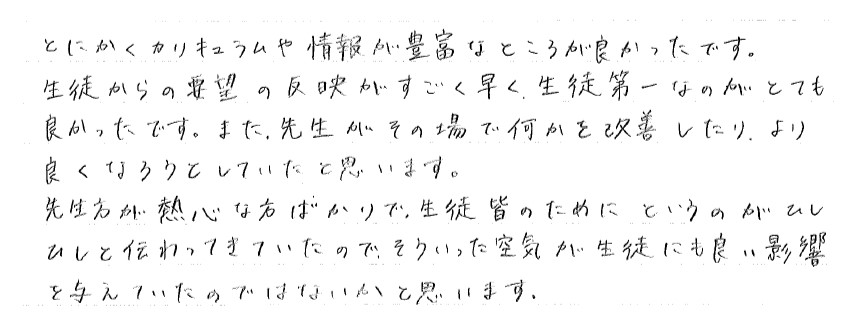 とにかくカリキュラムや情報が豊富なところが良かったです。
生徒からの要望の反映がすごく早く、生徒第一なのがとても
良かったです。また、先生がその場で何かを改善したり、より
良くなろうとしていたと思います。
先生方が熱心な方ばかりで、生徒皆のためにというのがひし
ひしと伝わってきていたので、そういった空気が生徒にも良い影響
を与えていたのではないかと思います。